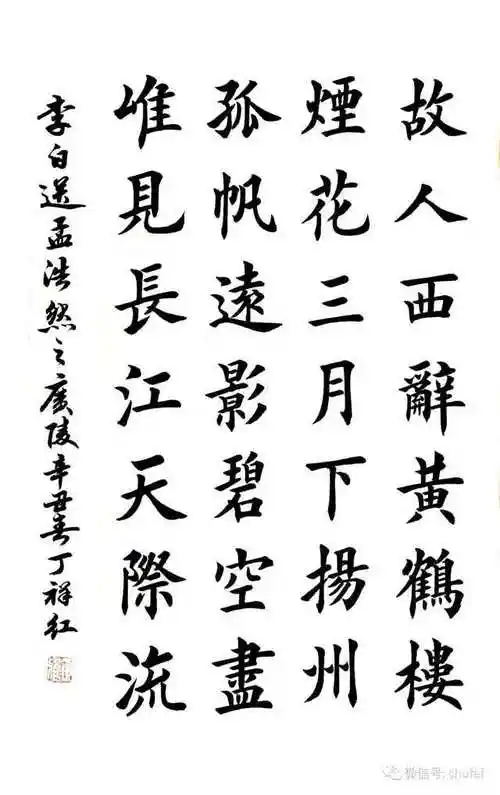 故人西辭黃鶴樓
煙花三月下揚州
孤帆遠影碧空盡
唯見長江天際流
李白送孟浩然之廣陵辛丑春丁祥紅
微信号: chufsf